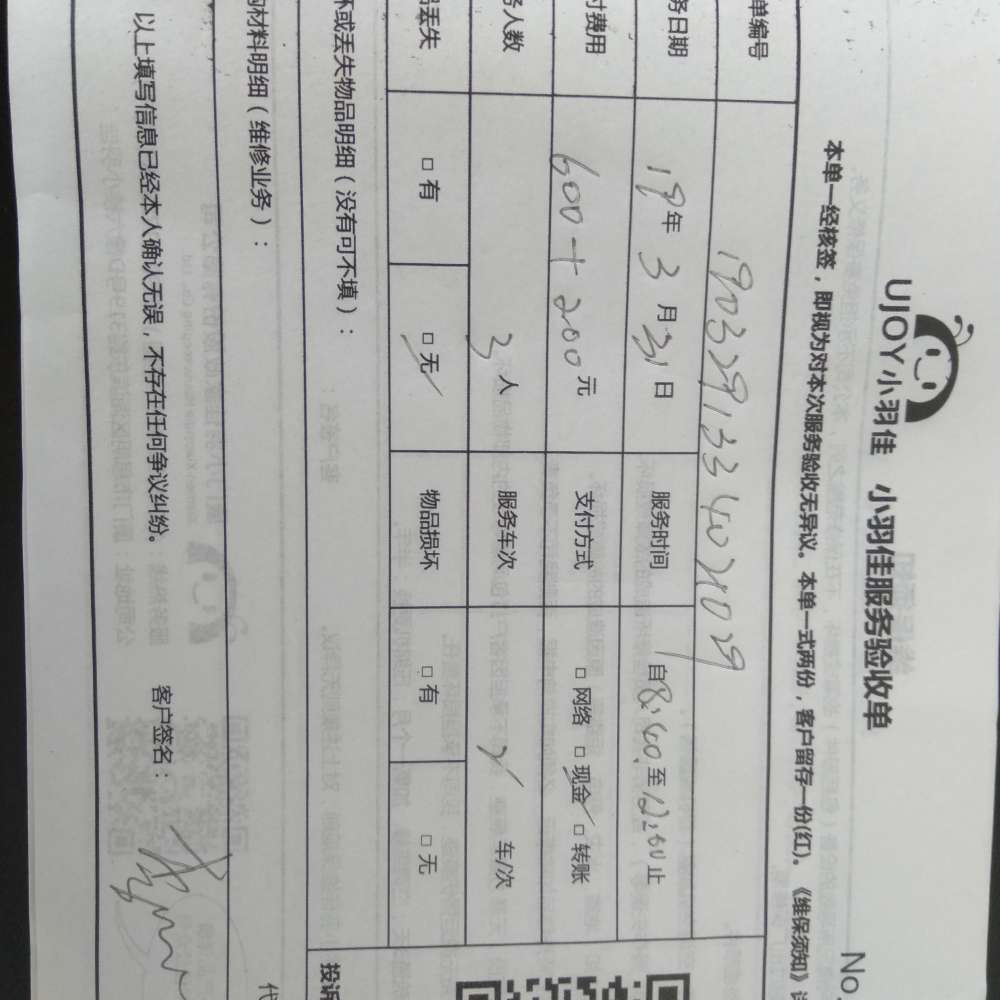 UJOY小羽佳 小羽佳服务验收单
No.
本单一经核签，即视为对本次服务验收无异议。本单一式两份，客户留存一份(红)。《维保须知》
单编号
务日期 19年3月31日 服务时间 自8:40至12:00止
付费用 600+200元 支付方式 □网络 □现金 □转账
务人数 3人 服务车次 车/次
品丢失 □有 □无 物品损坏 □有 □无
坏或丢失物品明细（没有可不填）：
投诉
材料明细（维修业务）：
以上填写信息已经本人确认无误，不存在任何争议纠纷。 客户签名：